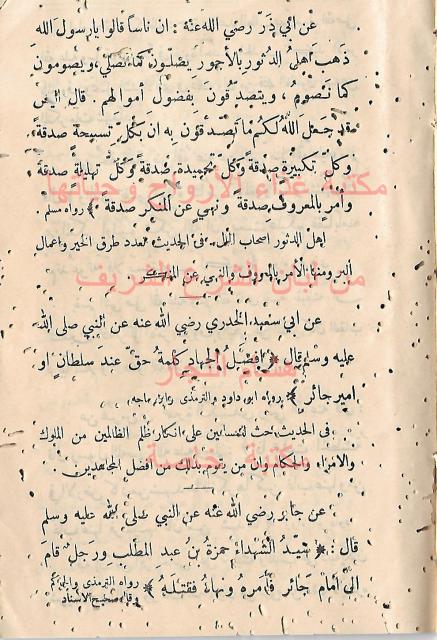 عن ابي ذَرّ رضي الله عنهُ : ان ناساً قالوا يا رسول الله
ذهب اهلُ الدُثور بالأجور يصلّون كما نصلّي، ويصومون
كما نَصُومُ ، ويتصدقُونَ بِفضُول أموالهم . قال
قد جعل اللهُ لكُم ما تصَّدقون به ان بكلِّ تسبيحة صدقةً
وكلِّ تكبيرةٍ صدقةً وكلِّ تحميدةٍ صدقةً وكلِّ تهليلةٍ صدقةً
وأمرٍ بالمعروف صدقة ونهيٍ عن المنكر صدقة ﴾ رواه مسلم .
اهل الدثور اصحاب المال . في الحديث تعدد طرق الخير واعمال
البر ومنها الأمر بالمعروف والنهي عن المنكر
عن ابي سعيد الخدري رضي الله عنه عن النبي صلى الله
عليه وسلم قال ﴿ افضلُ الجهادِ كلمةُ حقّ عند سلطانٍ او
اميرٍ جائر ﴾ رواه ابو داود والترمذي وابن ماجه
في الحديث حث للمسلمين على انكار ظلم الظالمين من الملوك
والامراء والحكام وان من يقوم بذلك من افضل المجاهدين .
عن جابر رضي الله عنه عن النبي صلى الله عليه وسلم
قال : ﴿ سيّدُ الشهداءِ حمزةُ بن عبد المطلب ورجلٌ قامَ
الى امام جَائر فأمرهُ ونهاهُ فقتلهُ ﴾ رواه الترمذي والحاكم
وقال صحيح الاسناد
مكتبة غذاء الأرواح وحياتها
هشام النجار
مكتبة خاصة